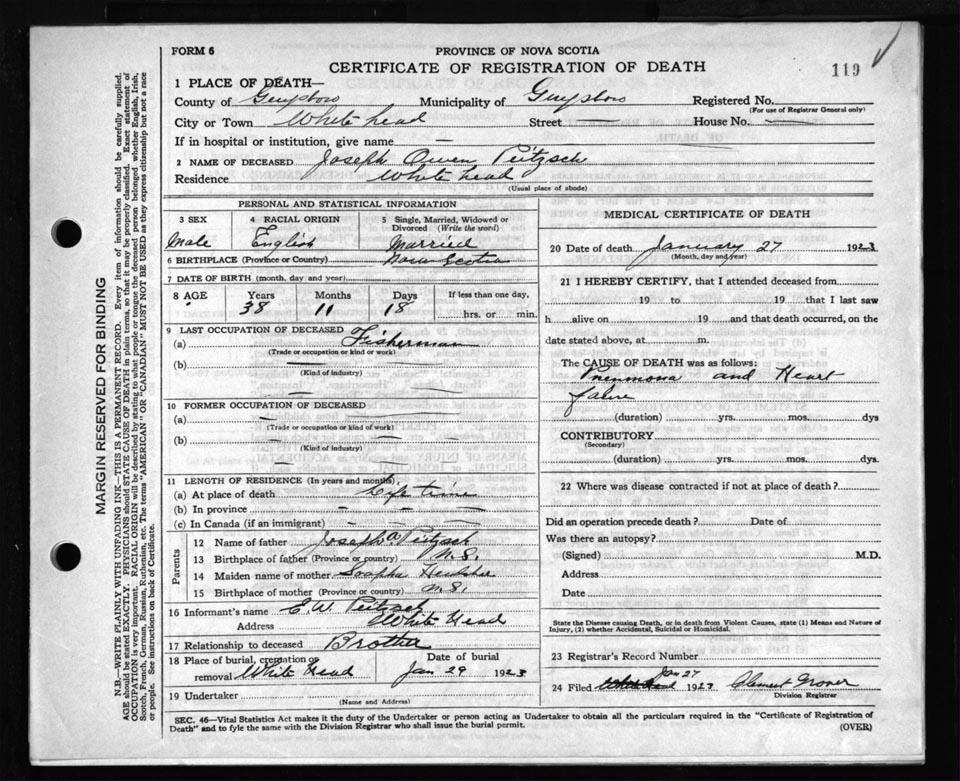 FORM 6
PROVINCE OF NOVA SCOTIA
CERTIFICATE OF REGISTRATION OF DEATH
119
1 PLACE OF DEATH—
County of Guysboro Municipality of Guysboro Registered No.
(For use of Registrar General only)
City or Town White head Street — House No. —
If in hospital or institution, give name —
2 NAME OF DECEASED Joseph Owen Peitzsch
Residence White head
(Usual place of abode)
PERSONAL AND STATISTICAL INFORMATION
3 SEX 4 RACIAL ORIGIN 5 Single, Married, Widowed or Divorced (Write the word)
Male English Married
6 BIRTHPLACE (Province or Country) Nova Scotia
7 DATE OF BIRTH (month, day and year)
8 AGE Years Months Days If less than one day,
38 11 18 hrs. or min.
9 LAST OCCUPATION OF DECEASED
(a) Fisherman
(Trade or occupation or kind or work)
(b) —
(Kind of industry)
— —
10 FORMER OCCUPATION OF DECEASED
(a) —
(Trade or occupation or kind of work)
(b) —
(Kind of industry)
— —
11 LENGTH OF RESIDENCE (In years and months)
(a) At place of death Life time
(b) In province — — —
(c) In Canada (if an immigrant) — — —
Parents
12 Name of father Joseph A Peitzsch
13 Birthplace of father (Province or country) N.S.
14 Maiden name of mother
15 Birthplace of mother (Province or country) N.S.
16 Informant's name E.W. Peitzsch
Address White Head
17 Relationship to deceased Brother
18 Place of burial, cremation or removal White Head
Date of burial
Jan 29 1923
19 Undertaker
(Name and Address)
MEDICAL CERTIFICATE OF DEATH
20 Date of death January 27 1923
(Month, day and year)
21 I HEREBY CERTIFY, that I attended deceased from
19 to 19 that I last saw
h alive on 19 and that death occurred, on the
date stated above, at m.
The CAUSE OF DEATH was as follows:
Pneumona and Heart
falure
(duration) yrs. mos. dys
CONTRIBUTORY
(Secondary)
(duration) yrs. mos. dys.
22 Where was disease contracted if not at place of death?
Did an operation precede death? Date of
Was there an autopsy?
(Signed) M.D.
Address
Date
State the Disease causing Death, or in death from Violent Causes, state (1) Means and Nature of
Injury, (2) whether Accidental, Suicidal or Homicidal.
23 Registrar's Record Number
24 Filed Jan 27 1923 Clement Groner
Division Registrar
SEC. 46—Vital Statistics Act makes it the duty of the Undertaker or person acting as Undertaker to obtain all the particulars required in the "Certificate of Registration of
Death" and to fyle the same with the Division Registrar who shall issue the burial permit.
(OVER)
MARGIN RESERVED FOR BINDING
N.B.—WRITE PLAINLY WITH UNFADING INK—THIS IS A PERMANENT RECORD. Every item of information should be carefully supplied.
AGE should be stated EXACTLY. PHYSICIANS should STATE CAUSE OF DEATH in plain terms, so that it may be properly classified. Exact statement of
OCCUPATION is very important. RACIAL ORIGIN will be described by stating to what people or tongue the deceased person belonged whether English, Irish,
Scotch, French, German, Russian, Ruthenian, etc. The terms "AMERICAN" OR "CANADIAN" MUST NOT BE USED as they express citizenship but not a race
or people. See instructions on back of Certificate.